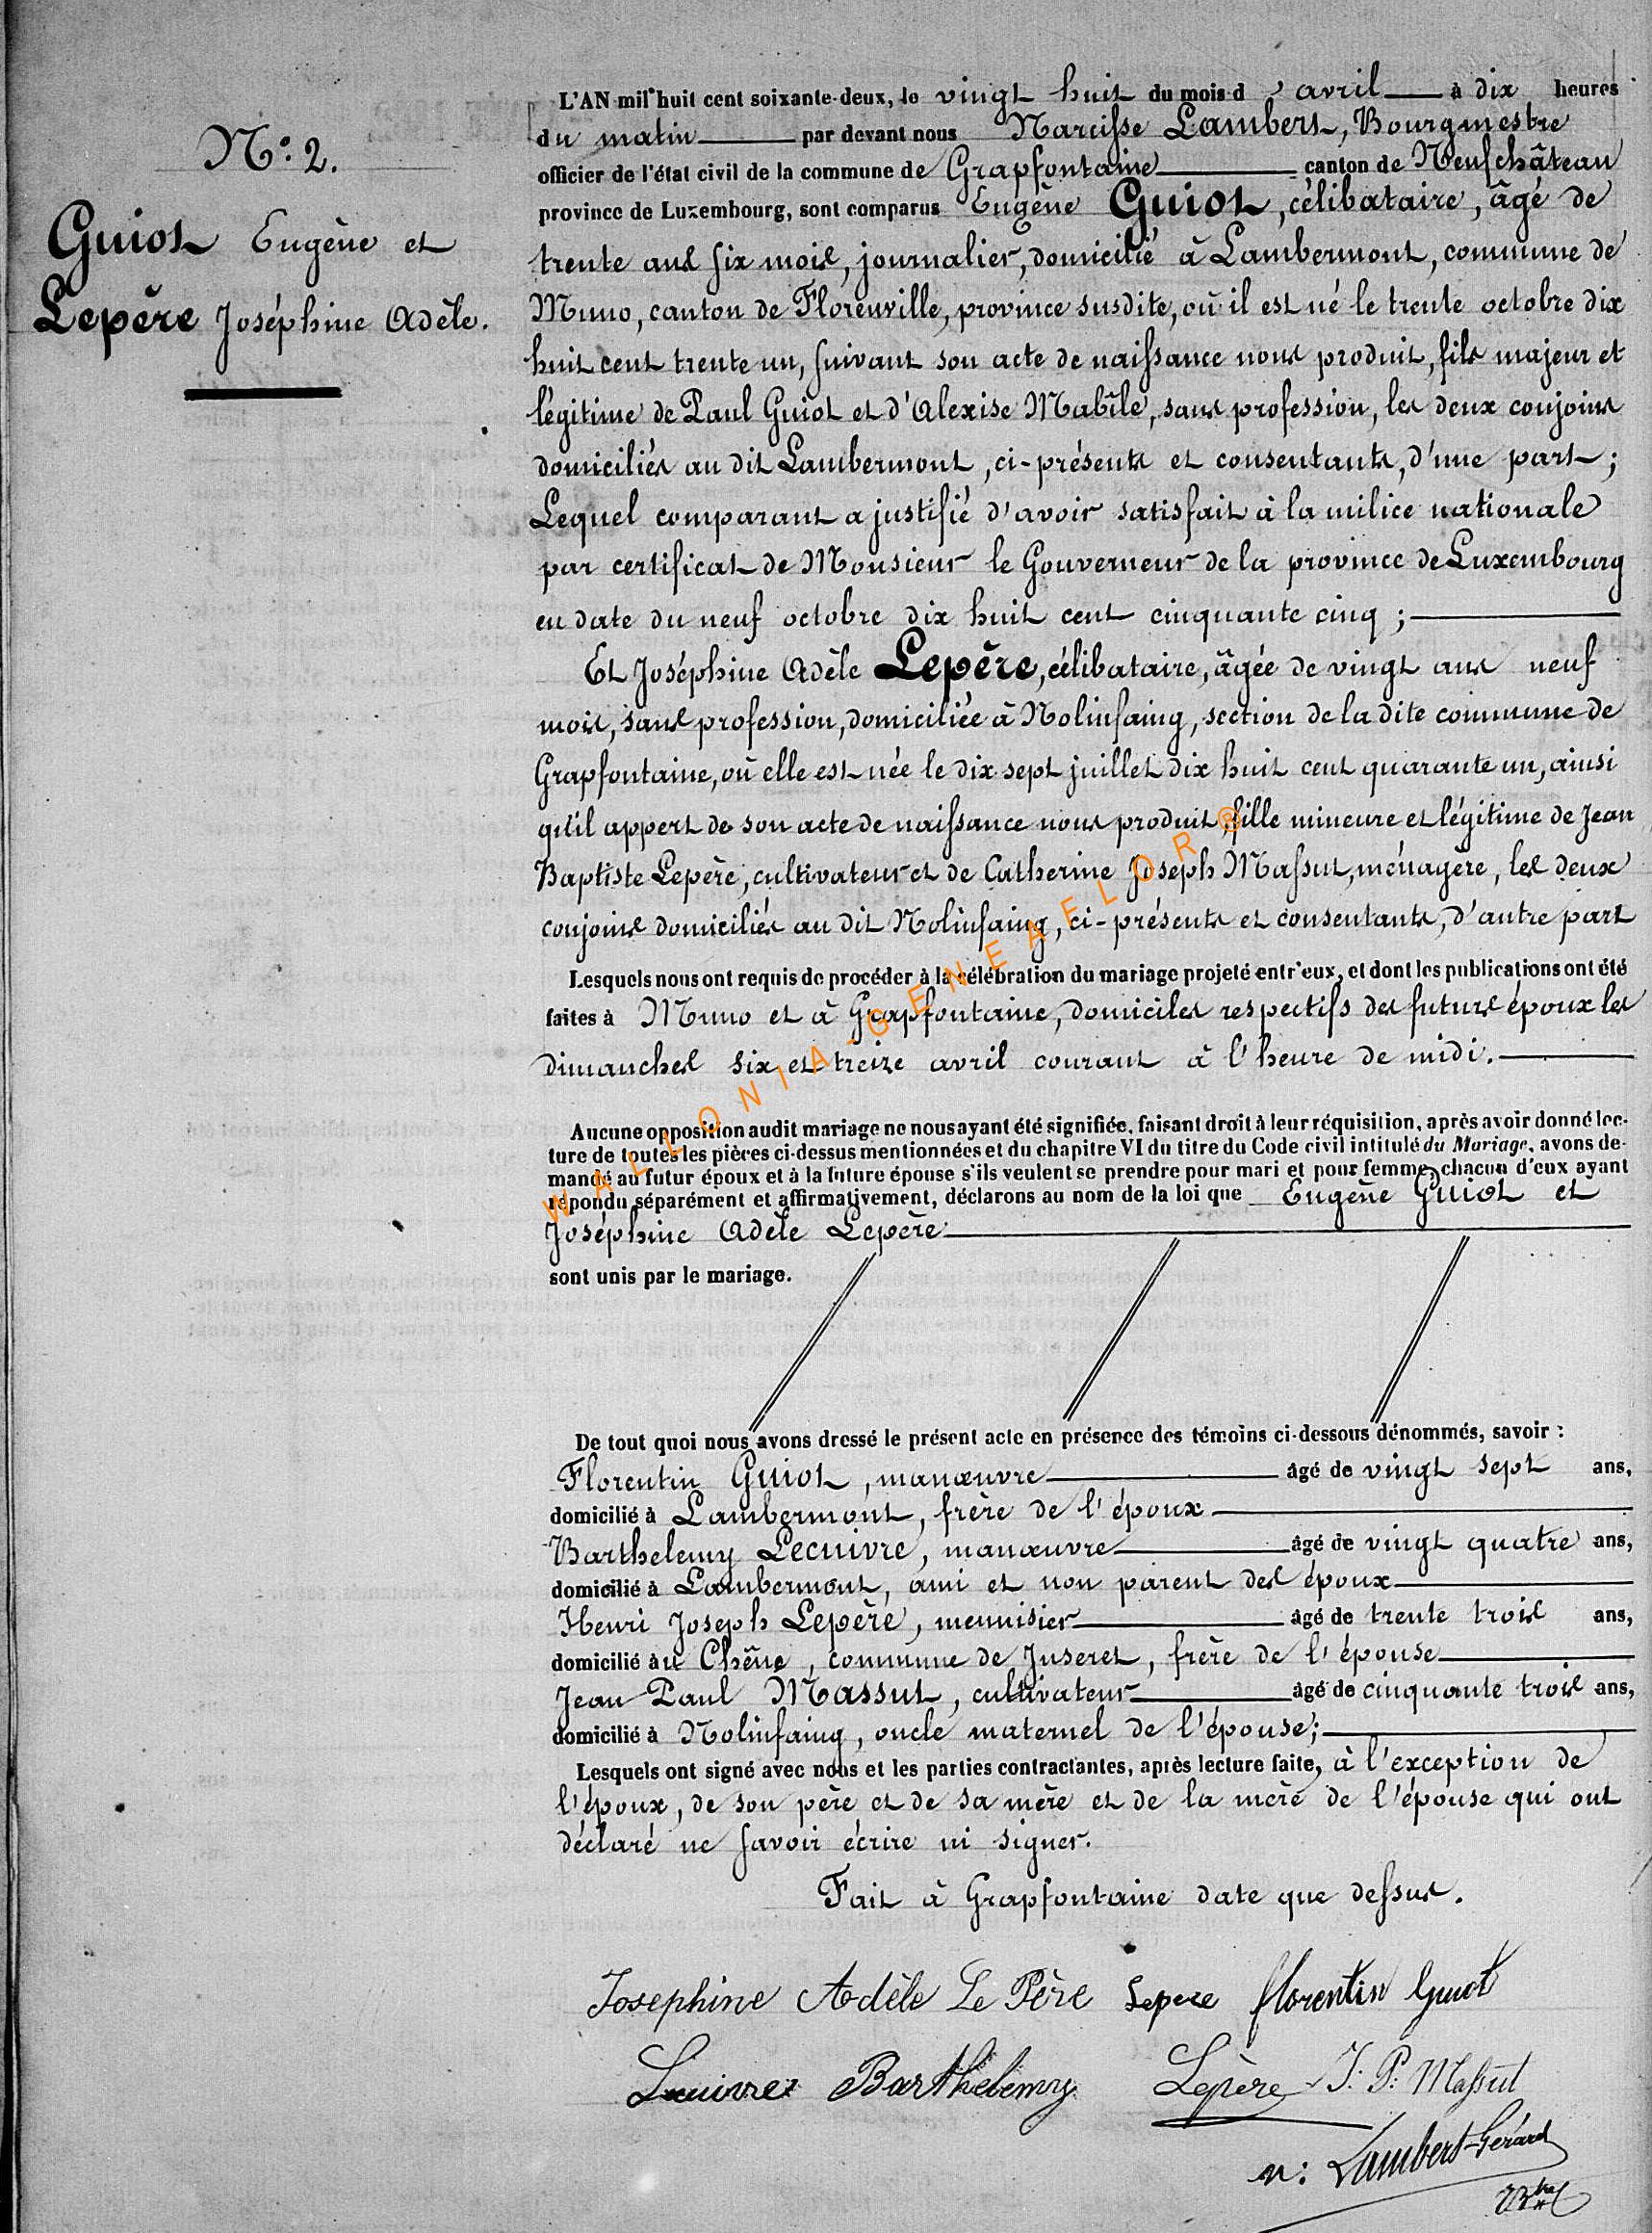 N.° 2.
Guiot Eugène et
Lepère Joséphine Adèle.
L'AN mil huit cent soixante-deux, le vingt huit du mois d'avril à dix heures
du matin par devant nous Narcisse Lambert, Bourgmestre
officier de l'état civil de la commune de Grapfontaine canton de Neufchâteau
province de Luxembourg, sont comparus Eugène Guiot, célibataire, âgé de
trente ans six mois, journalier, domicilié à Lambermont, commune de
Muno, canton de Florenville, province susdite, où il est né le trente octobre dix
huit cent trente un, suivant son acte de naissance nous produit, fils majeur et
légitime de Paul Guiot et d'Alexise Mabîle, sans profession, les deux conjoins
domiciliés au dit Lambermont, ci-présents et consentants, d'une part;
Lequel comparant a justifié d'avoir satisfait à la milice nationale
par certificat de Monsieur le Gouverneur de la province de Luxembourg
en date du neuf octobre dix huit cent cinquante cinq;
Et Joséphine Adèle Lepère, célibataire, âgée de vingt ans neuf
mois, sans profession, domiciliée à Nolinfaing, section de la dite commune de
Grapfontaine, où elle est née le dix sept juillet dix huit cent quarante un, ainsi
qu'il appert de son acte de naissance nous produit, fille mineure et légitime de Jean
Baptiste Lepère, cultivateur et de Catherine Joseph Massut, ménagère, les deux
conjoins domiciliés au dit Nolinfaing, ci-présents et consentants, d'autre part
Lesquels nous ont requis de procéder à la célébration du mariage projeté entr'eux, et dont les publications ont été
faites à Muno et à Grapfontaine, domiciles respectifs des futurs époux les
dimanches six et treize avril courant à l'heure de midi.
Aucune opposition audit mariage ne nous ayant été signifiée, faisant droit à leur réquisition, après avoir donné lec-
ture de toutes les pièces ci-dessus mentionnées et du chapitre VI du titre du Code civil intitulé du Mariage, avons de-
mandé au futur époux et à la future épouse s'ils veulent se prendre pour mari et pour femme, chacun d'eux ayant
répondu séparément et affirmativement, déclarons au nom de la loi que Eugène Guiot et
Joséphine Adèle Lepère
sont unis par le mariage.
De tout quoi nous avons dressé le présent acte en présence des témoins ci-dessous dénommés, savoir :
Florentin Guiot, manœuvre âgé de vingt sept ans,
domicilié à Lambermont, frère de l'époux
Barthelemy Lecuivre, manœuvre âgé de vingt quatre ans,
domicilié à Lambermont, ami et non parent des époux
Henri Joseph Lepère, menuisier âgé de trente trois ans,
domicilié au Chêne, commune de Juseret, frère de l'épouse
Jean Paul Massut, cultivateur âgé de cinquante trois ans,
domicilié à Nolinfaing, oncle maternel de l'épouse;
Lesquels ont signé avec nous et les parties contractantes, après lecture faite, à l'exception de
l'époux, de son père et de sa mère et de la mère de l'épouse qui ont
déclaré ne savoir écrire ni signer.
Fait à Grapfontaine date que dessus.
Josephine Adèle Le Père Lepere florentin Guiot
Lecuivre Barthelemy Lepère J. P. Massut
N: Lambert-Gérard
Btre
WALLONIA-GENEAELOR®